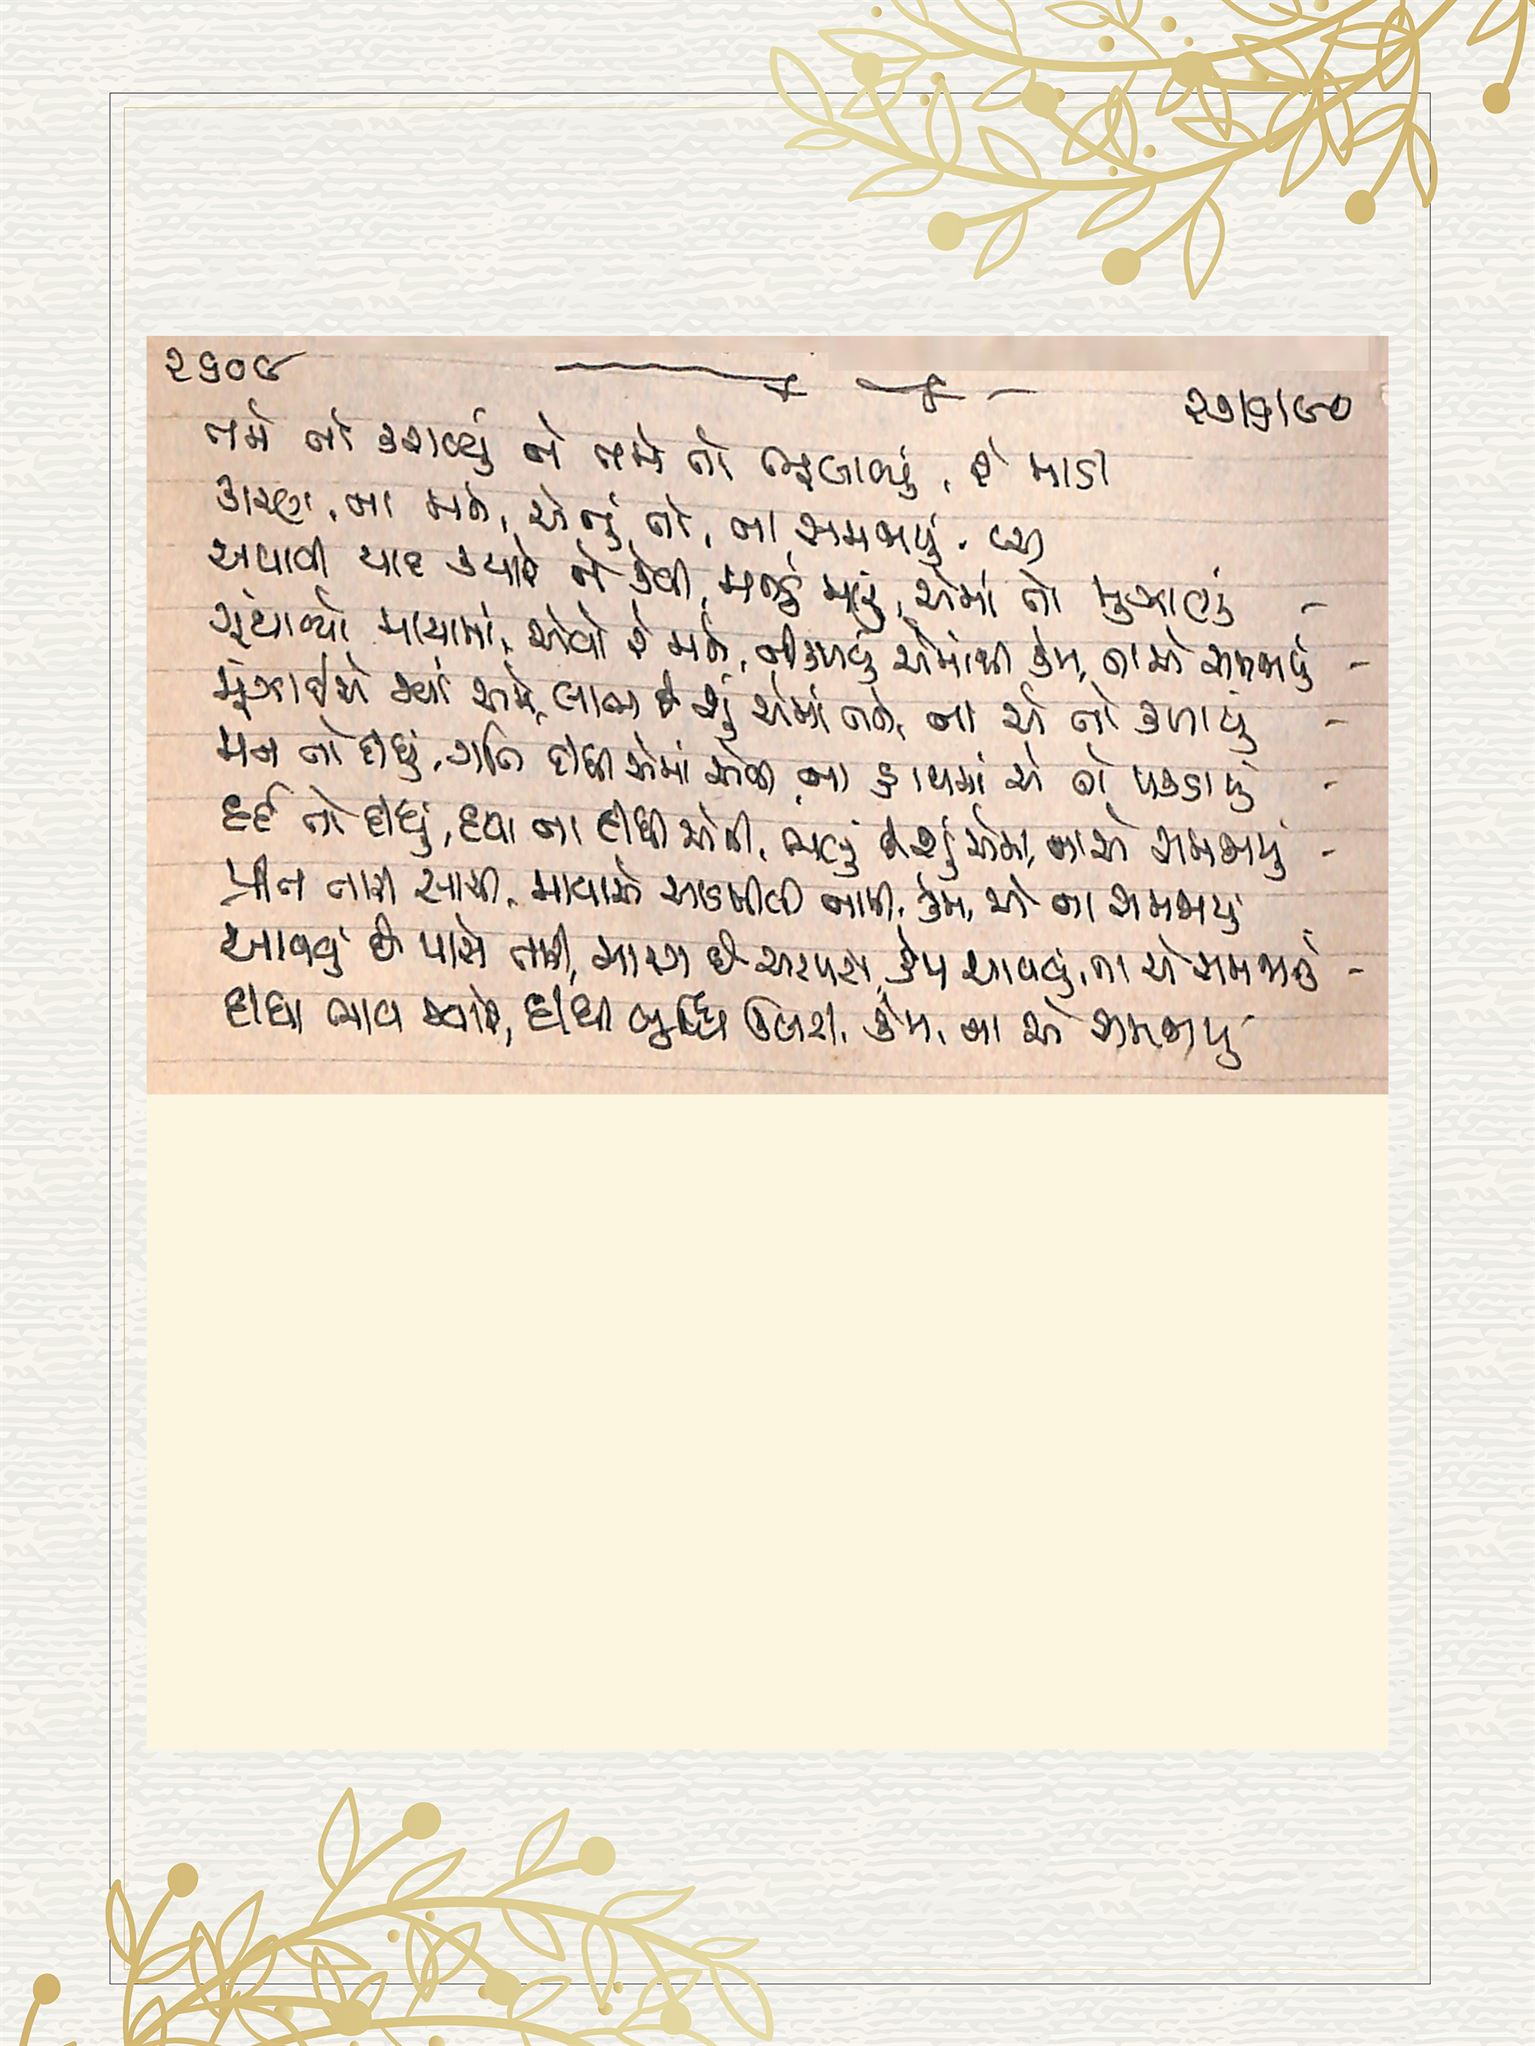 ૨૬૦૯
૨૭/૬/૯૦
તમે તો કરાવ્યું ને તમે તો ભુલાવ્યું, રે માડી
કારણ, ના મને, એનું તો, ના સમજાયું.
અપાવી યાદ ક્યારે ને કેવી, મનડું મારું, એમાં તો મુંઝાયું -
ગૂંથાવ્યો માયામાં, એવો રે મને, નીકળવું એમાંથી કેમ, ના એ સમજાયું -
મુંઝાઈએ જ્યાં અમે, લાભ છે શું એમાં તને, ના એ તો કળાયું -
મન તો દીધું, ગતિ દીધી એમાં એવી ના હાથમાં એ તો પકડાયું -
દર્દ તો દીધું, દવા ના દીધી એની, ભલું છે શું એમાં, ના એ સમજાયું -
પ્રીત તારી સાચી, માયાએ આડખીલી નાખી, કેમ, એ ના સમજાયું
આવવું છે પાસે તારી, માયા છે સરપસ, કેમ આવવું, ના એ સમજાયું -
દીધા ભાવ જ્યારે, દીધી બુદ્ધિ કેમ, ના એ સમજાયું